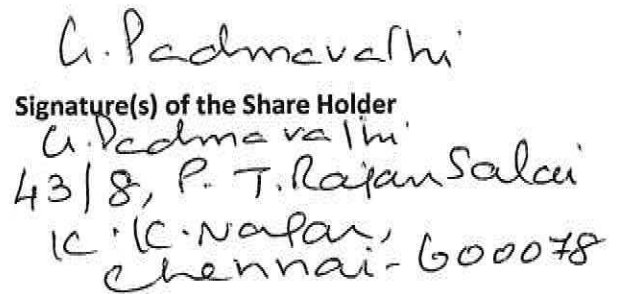 G. Padmavathi
Signature(s) of the Share Holder
G. Padmavathi
43/8, P. T. Rajan Salai
K. K. Nagar,
Chennai - 600078